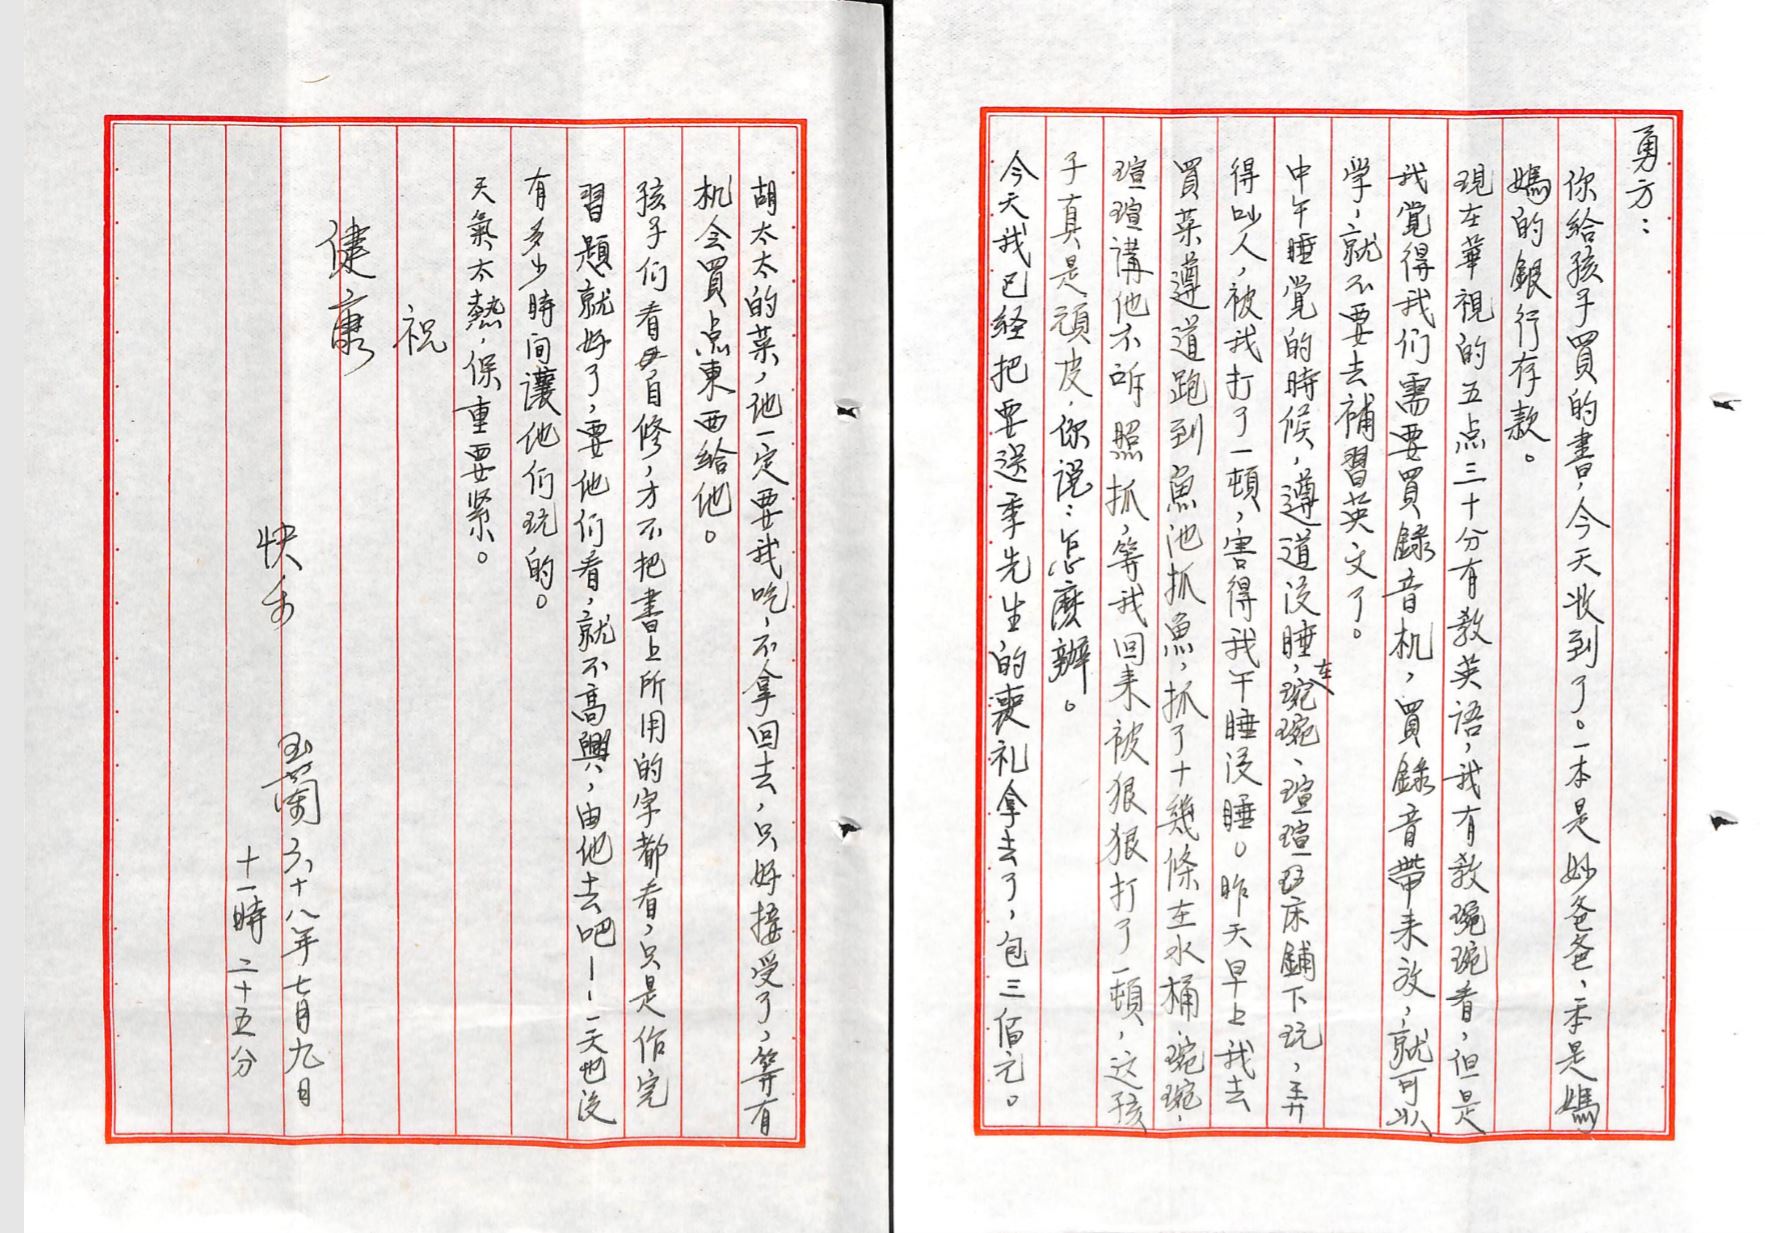 勇方：
你給孩子買的書，今天收到了。一本是妙爸爸，一本是媽
媽的銀行存款。
現在華視的五点三十分有教英語，我有教琬琬看，但是
我覺得我们需要買錄音机，買錄音帶来放，就可以
学，就不要去補習英文了。
中午睡覺的時候，遵道没睡，琬琬、瑄瑄在床鋪下玩，弄
得吵人，被我打了一頓，害得我午睡没睡。昨天早上我去
買菜遵道跑到魚池抓魚，抓了十幾條在水桶，琬琬，
瑄瑄講他不听照抓，等我回来被狠狠打了一頓，这孩
子真是頑皮，你説：怎麼辦。
今天我已经把要送季先生的喪礼拿去了，包三佰元。
胡太太的菜，他一定要我吃，不拿回去，只好接受了，等有
机会買点東西給他。
孩子们看自修，才不把書上所用的字都看，只是作完
習題就好了，要他们看，就不高興，由他去吧——一天也没
有多少時间讓他们玩的。
天氣太熱，保重要緊。
祝
健康
快乐
玉蘭六十八年七月九日
十一時二十五分